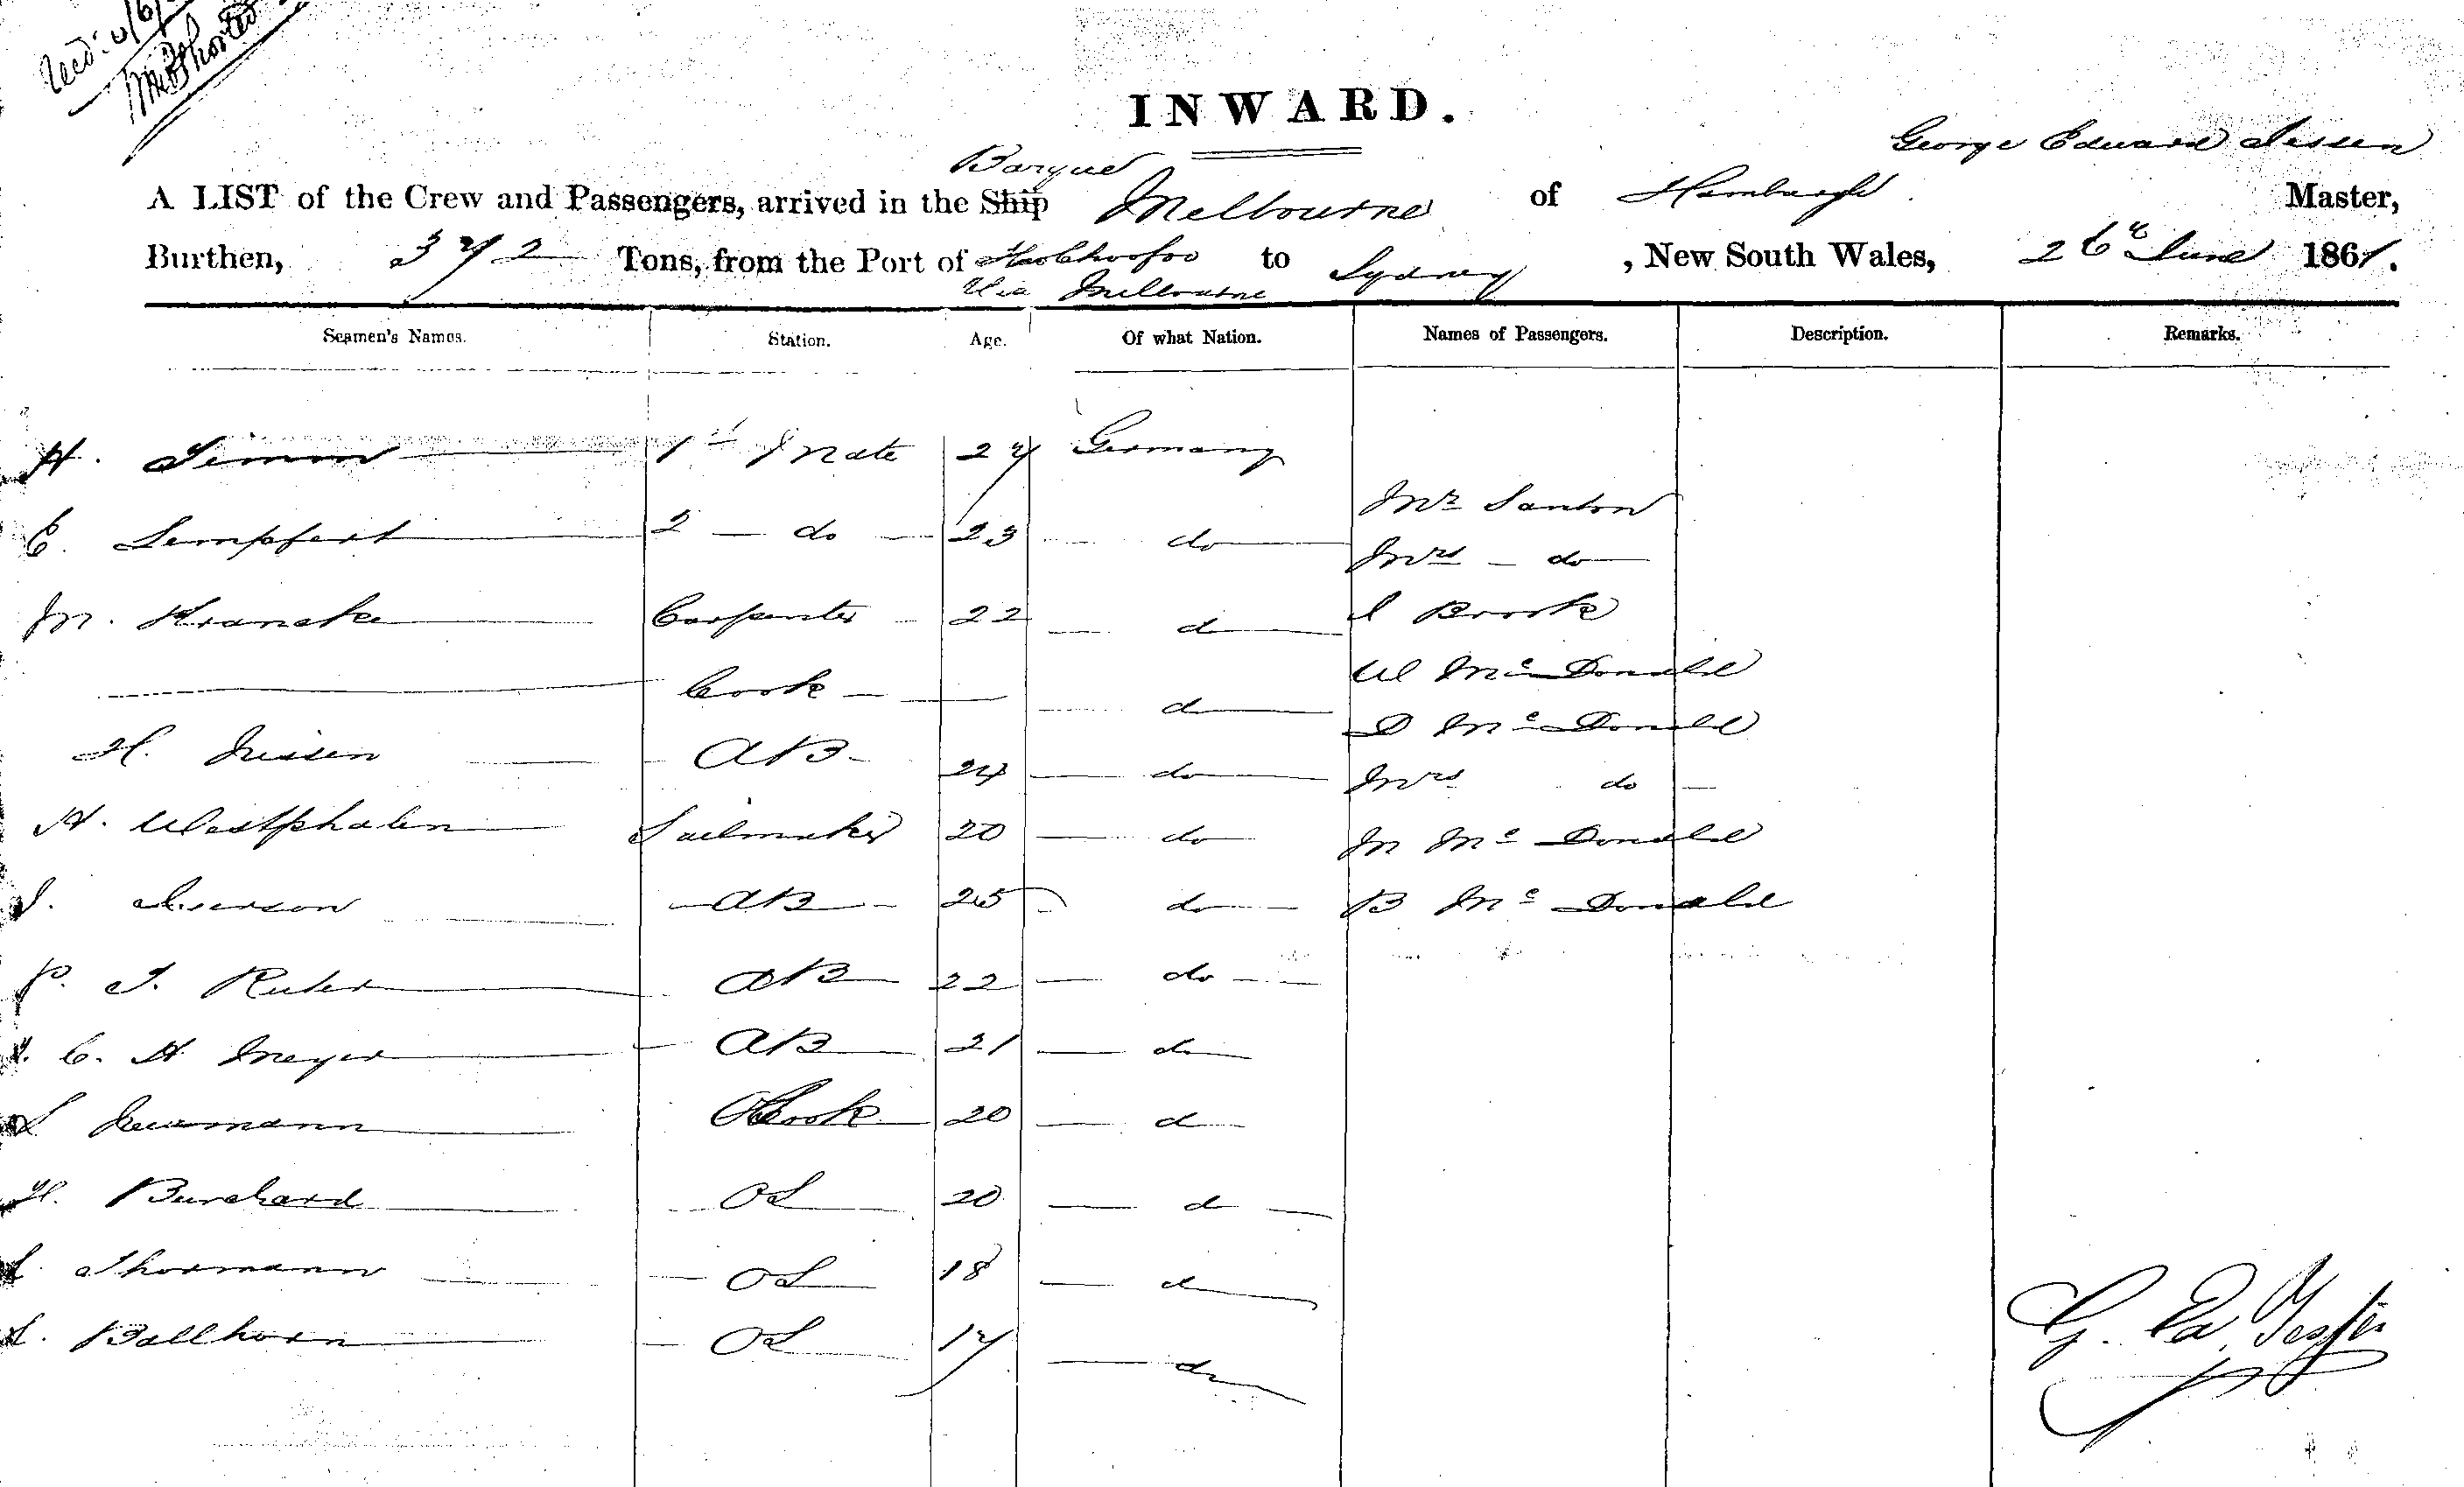 INWARD.
George Edward Jessen
Barque
A LIST of the Crew and Passengers, arrived in the Ship Melbourne of Hamburgh Master,
Burthen, 372 Tons, from the Port of to Sydney, New South Wales, 26th June 1861.
Via Melbourne
Seamen's Names. Station. Age. Of what Nation. Names of Passengers. Description. Remarks.
H. Timm 1st Mate 27 Germany
Mr Santon
C. Lempfert 2 - do - 23 do
Mrs - do
M. Krancke Carpenter 22 do J Brook
Cook - do W McDonald
D McDonald
H. Nissen AB - 24 do Mrs do
H. Westphalen Sailmaker 20 do M McDonald
J. Iverson AB 25 do B McDonald
P. J. Ruter AB 22 do
J. C. H Meyer AB 21 do
L Neumann Cook 20 d
H. Burchard OS 20 d
L. Thormann OS 18 d
L. Ballhorn OS 17 do
G. Ed. Jessen